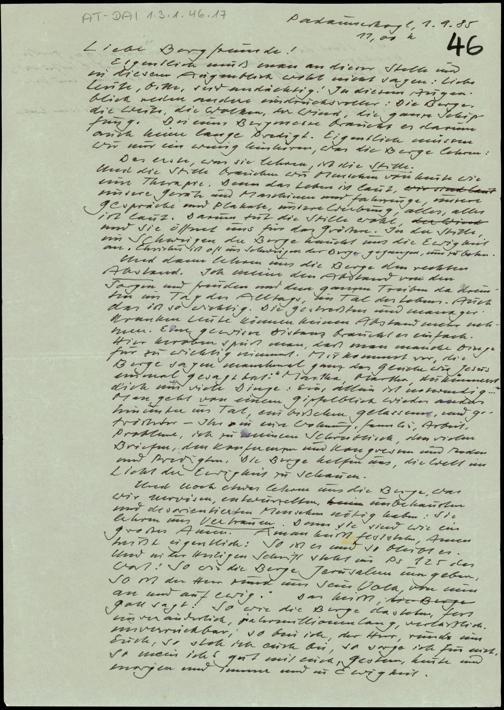 AT-DAI 1.3.1.46.17
46
1.9.85
11,00 h
Liebe Bergfreunde!
Eigentlich muß man an dieser Stelle und
in diesem Augenblick wohl nicht sagen: Liebe
Leute, bitte, seid andächtig! In diesem Augen-
blick reden andere eindrucksvoller: Die Berge,
die Weite, die Wolken, der Wind, die ganze Schöp-
fung. Bei uns Bergmesse braucht es darum
auch keine lange Predigt. Eigentlich müssen
wir nur ein wenig hinhören, was die Berge lehren:
Das erste, was sie lehren, ist die Stille.
Und die Stille brauchen wir Menschen von heute wie
eine Therapie. Denn das Leben ist laut,
unsere Geräte und Maschinen und Fahrzeuge, unsere
Gespräche und Plakate, unsere Werbung, alles, alles
ist laut. Darum tut die Stille wohl,
und sie öffnet uns für das Größere. In der Stille,
im Schweigen der Berge haucht uns die Ewigkeit
an. Christus ist oft ins Schweigen der Berge gegangen, um zu beten.
Und dann lehren uns die Berge den rechten
Abstand. Ich meine den Abstand von den
Sorgen und Freuden und dem ganzen Treiben da drun-
ten im Tag des Alltags, im Tal des Lebens. Auch
das ist so wichtig. Die gestreßten und manager-
kranken Leute können keinen Abstand mehr neh-
men. Eine gewisse Distanz braucht es einfach.
Hier heroben spürt man, daß man manche Dinge
für zu wichtig nimmt. Mir kommt vor, die
Berge sagen manchmal ganz das gleiche wie Jesus
einmal gesagt hat: "Martha, Martha, du kümmerst
dich um viele Dinge: Eins allein ist notwendig"
Man geht von einem Gipfelblick wieder anders
hinunter ins Tal, ein bisschen gelassener und ge-
trösteter – Ihr in eure Wohnung, Familie, Arbeit,
Probleme, ich zu meinem Schreibtisch, den vielen
Briefen, den Konferenzen und Kongressen und Reden
und Predigten. Die Berge helfen uns, die Welt im
Licht der Ewigkeit zu schauen.
Und noch etwas lehren uns die Berge, was
wir nervösen, entwurzelten, unbehausten
und desorientierten Menschen nötig haben: Sie
lehren uns Vertrauen. Denn sie sind wie ein
großes Amen. Aman heißt feststehn, Amen
heißt eigentlich: So ist es und so bleibt es.
Und in der Heiligen Schrift steht im Ps 125 das
Wort: So wie die Berge Jerusalem umgeben,
so ist der Herr rund um sein Volk, von nun
an und auf ewig." Das heißt,
Gott sagt: So wie die Berge dastehn, fest
unveränderlich, jahrmillionenlang, verläßlich,
unverrückbar, so bin ich, der Herr, rund um
Euch, so steh ich euch bei, so sorge ich für euch,
so mein ich's gut mit euch, gestern, heute und
morgen und immer und in Ewigkeit.